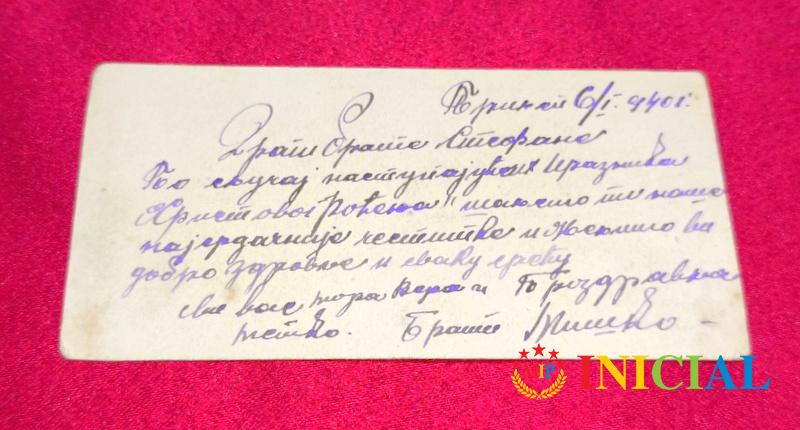 6/I. 940 г.
Драги брате Стефане
По случај наступајућег празника
Христовог Рођења шаљемо ти наше
најсрдачније честитке и желимо вам
добро здравље и сваку срећу
све вас Вера и Поздравља
Брат Мишко
INICIAL
IP